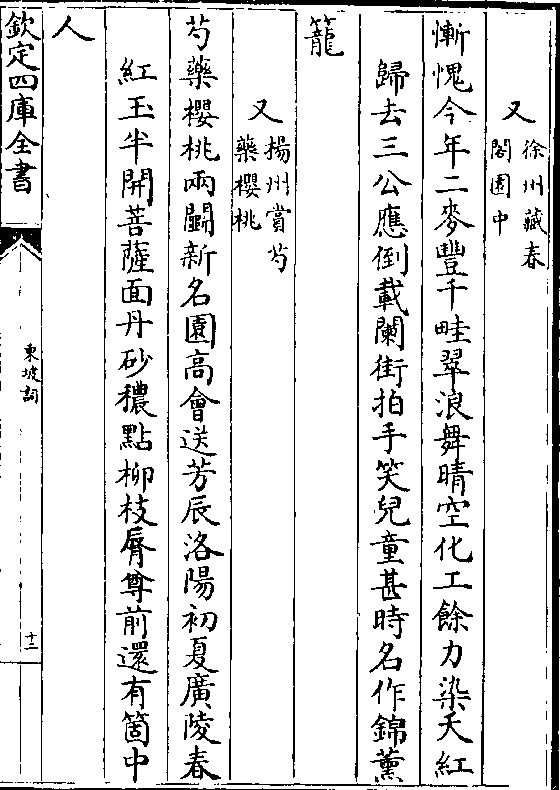 又 徐州藏春
閣園中
慚愧今年二麥豐千畦翠浪舞晴空化工餘力染夭紅
歸去三公應倒載闌街拍手笑兒童甚時名作錦薰
籠
又 揚州賞芍
藥櫻桃
芍藥櫻桃兩鬭新名園高會送芳辰洛陽初夏廣陵春
紅玉半開菩薩面丹砂穠點柳枝脣尊前還有箇中
人
欽定四庫全書
東坡詞
十二